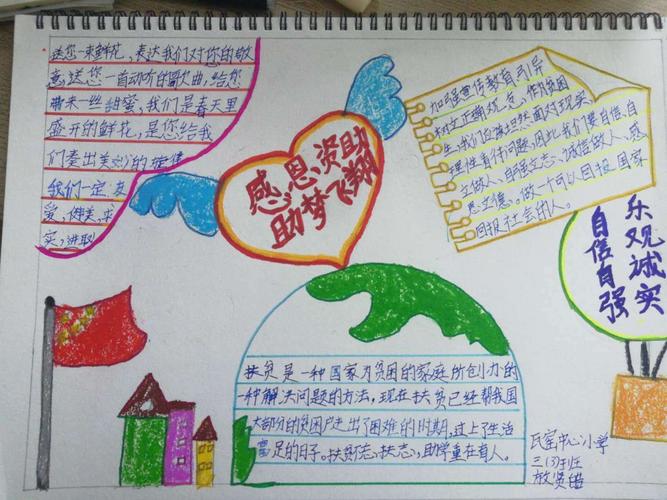 送您一束鲜花，表达我们对你的敬
意，送您一首动听的歌曲，给您
带来一些甜蜜，我们是春天里
盛开的鲜花，是您给我
们奏出美妙的
我们一定
爱，健美，求
实，进取
感恩资助
助梦飞翔
加强宣传教育引导
树立正确观念，作为贫困
生，我们应该坦然面对现实，
理性看待问题，因此我们要自信、自
立做人、自强立志、诚信做人、感
恩立德。做一个可以回报国家
回报社会的人。
乐观诚实
自信自强
扶贫是一种国家为贫困的家庭所创办的
一种解决问题的方法，现在扶贫已经帮我国
大部分的贫困户走出了困难的时期，过上了生活
富足的日子。扶贫先扶志，助学重在育人。
瓦窑中心小学
三(3)班